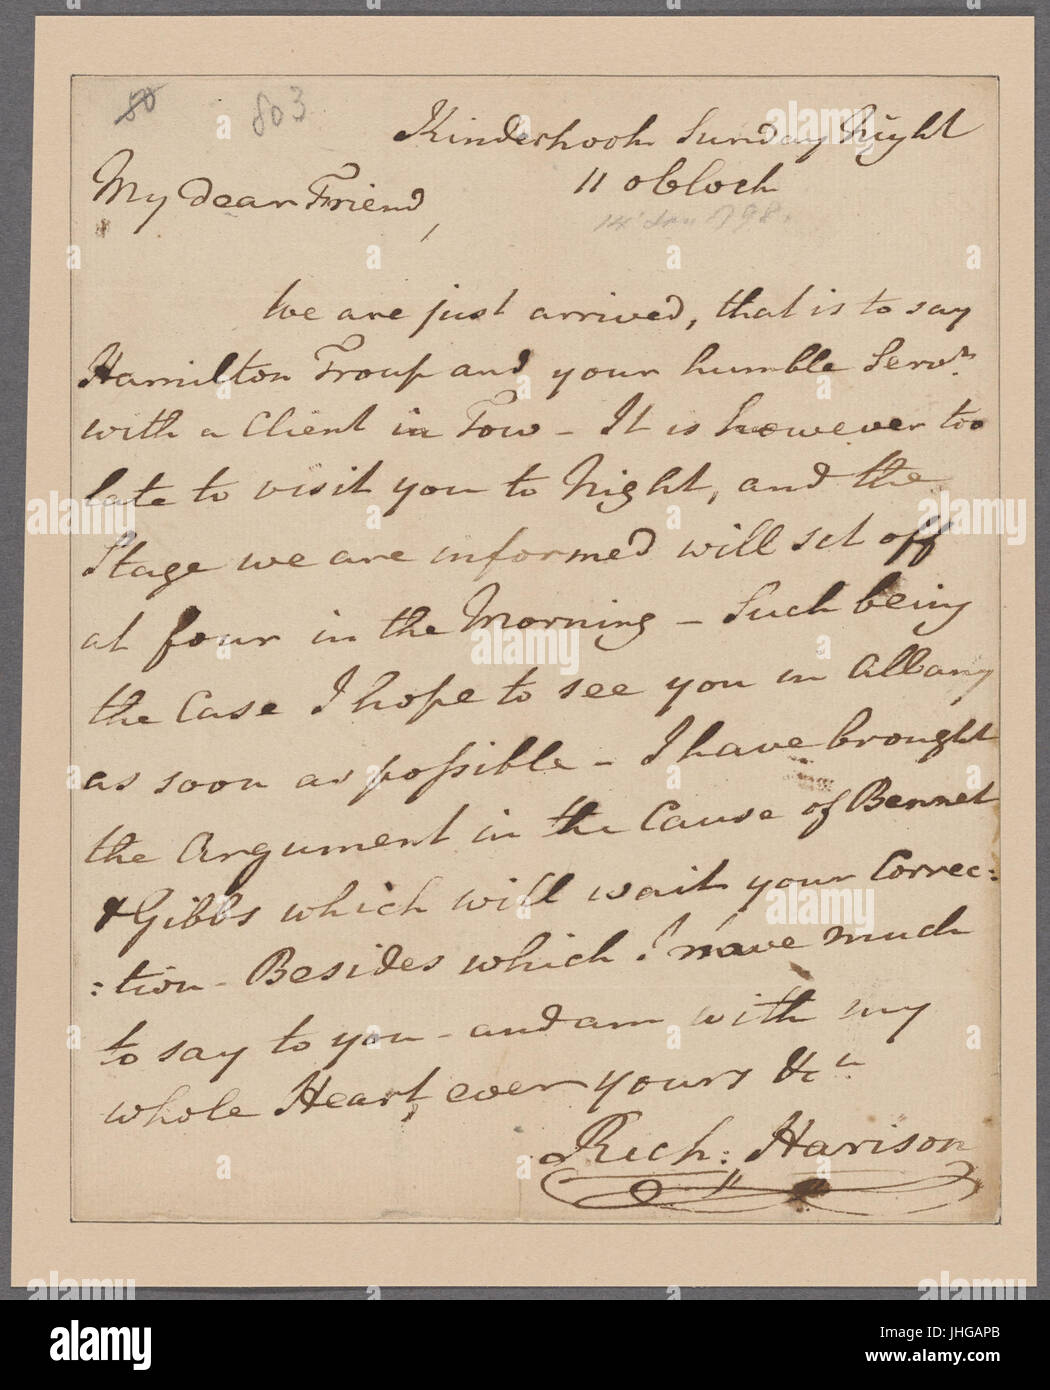 80 803
Kinderhook Sunday Night
11 oClock
My Dear Friend,
14 Jan 1798.
We are just arrived, that is to say
Hamilton Troup and your humble Servt.
with a Client in Tow – It is however too
late to visit you to Night, and the
Stage we are informed will set off
at four in the Morning – Such being
the Case I hope to see you in Albany
as soon as possible – I have brought
the Argument in the Cause of Bennet
& Gibbs which will wait your Correc:
:tion – Besides which I have much
to say to you – and am with my
whole Heart, ever yours &c
Rich: Harison
alamy
Image ID: JHGAPB
www.alamy.com